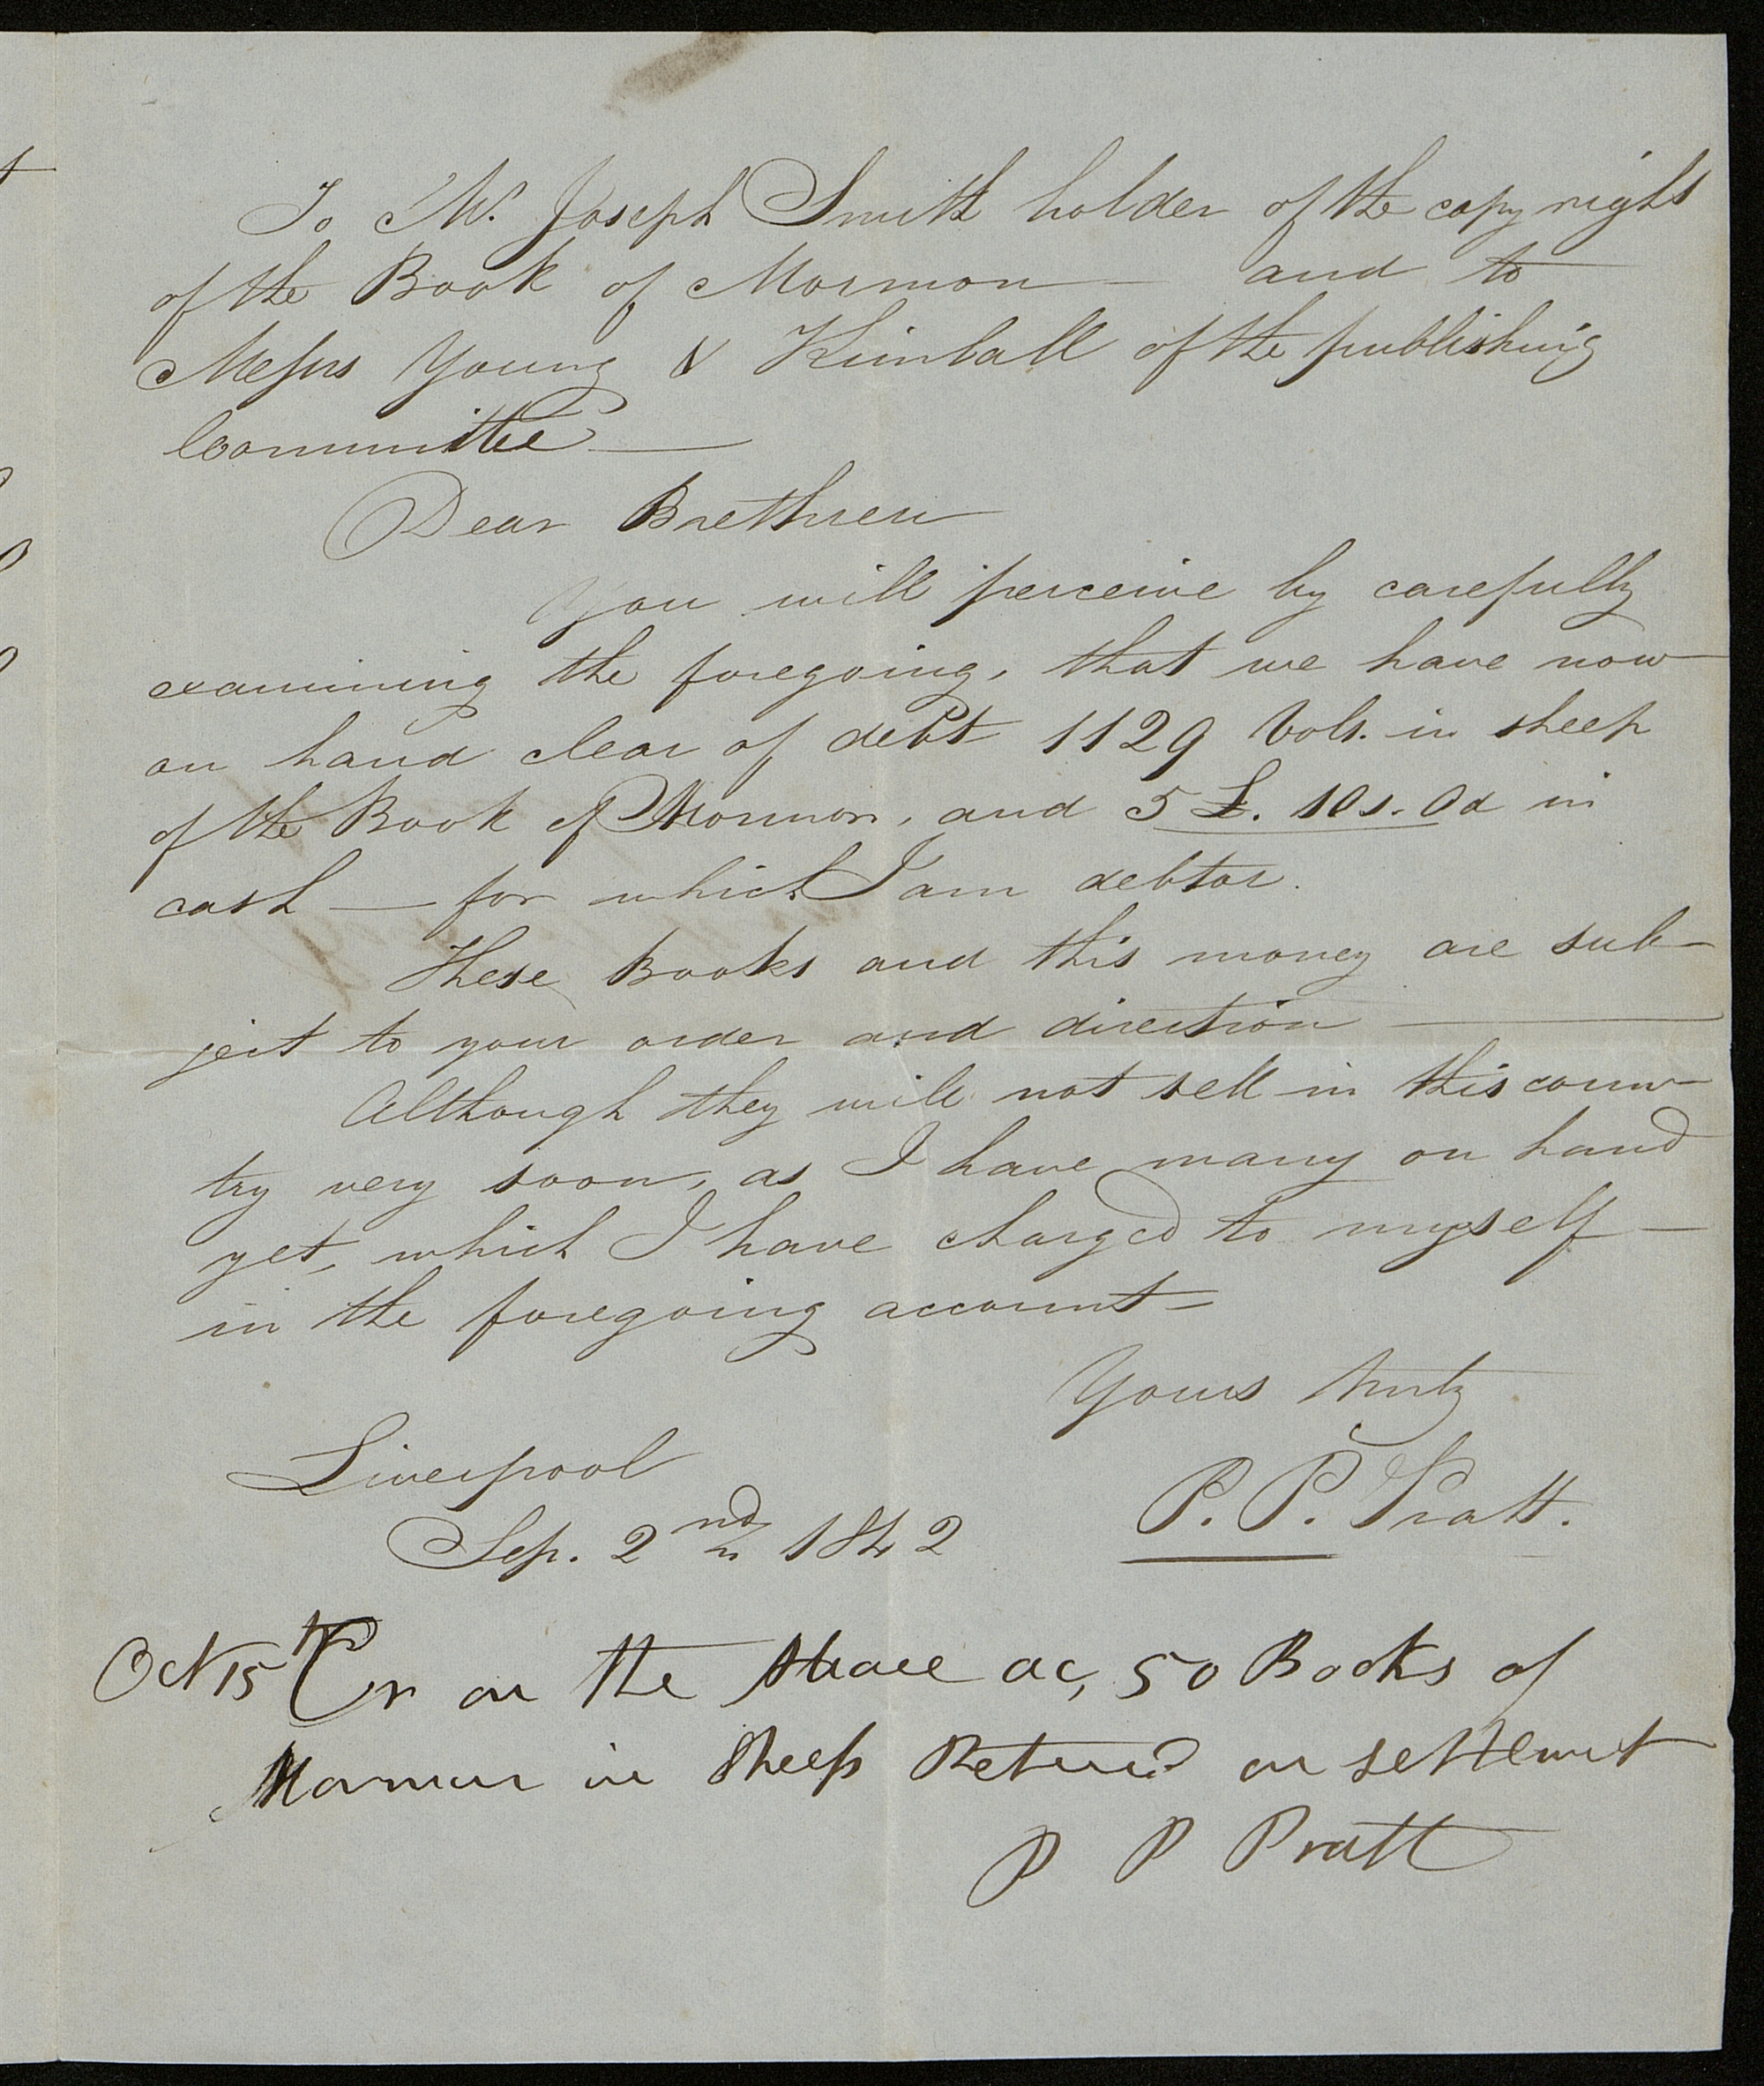 To Mr. Joseph Smith holder of the copy right
of the Book of Mormon — and to
Messrs Young & Kimball of the publishing
Committee —
Dear Brethren
You will perceive by carefully
examining the foregoing, that we have now
on hand clear of debt 1129 Vols. in sheep
of the Book of Mormon, and 5 £. 10s. 0d in
cash — for which I am debtor.
These Books and this money are sub-
ject to your order and direction —
Although they will not sell in this coun-
try very soon, as I have many on hand
yet, which I have charged to myself —
in the foregoing account —
Yours truly
P. P. Pratt.
Liverpool
Sep. 2nd 1842
Oct 15th Cr on the above ac, 50 Books of
Mormon in Sheep Returd on settlemt
P P Pratt